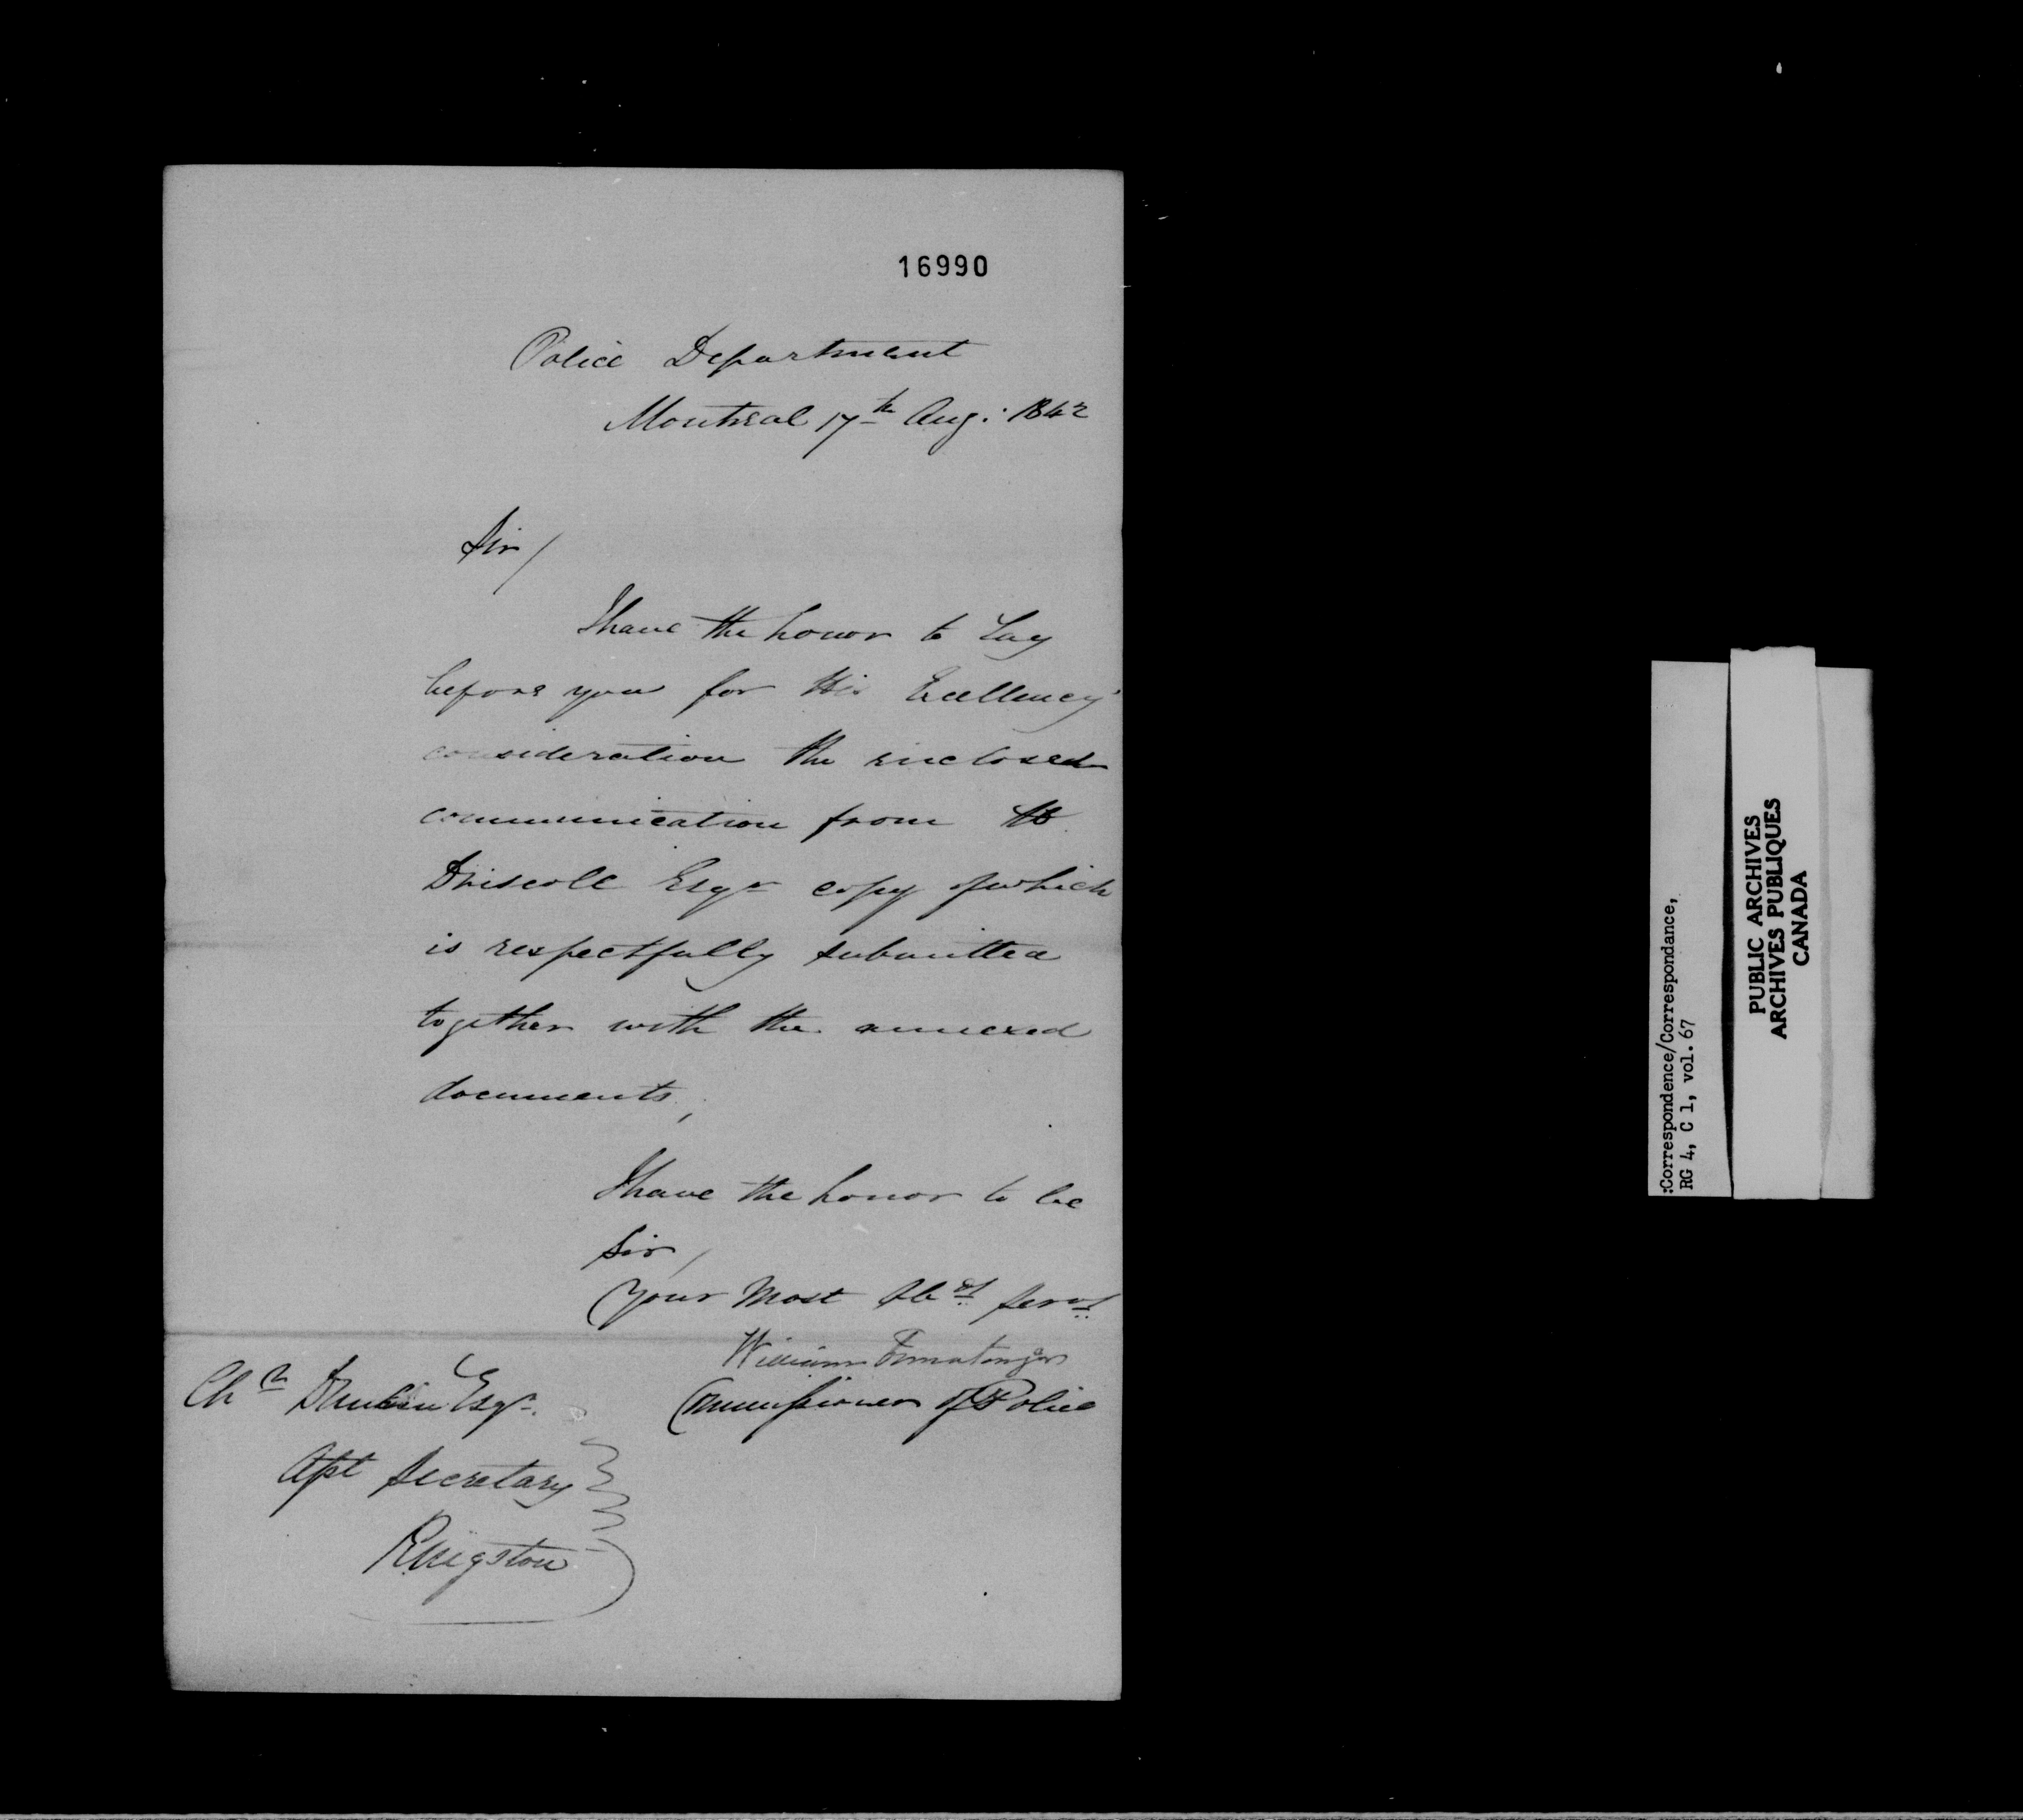 16990
Police Department
Montreal 17th Aug: 1842
Sir/
I have the honor to Lay
before you for His Excellency's
consideration the enclosed
communication from H.
Driscoll Esqr copy of which
is respectfully submitted
together with the annexed
documents,
I have the honor to be
Sir,
Your Most Obt Servt
William Ermatinger
Commissioner of Police
Chs Dunkin Esqr.
Asst Secretary
Kingston
:Correspondence/Correspondance,
RG 4, C 1, vol. 67
PUBLIC ARCHIVES
ARCHIVES PUBLIQUES
CANADA